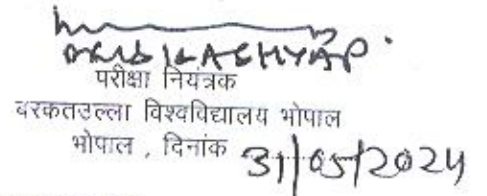 KACHYAP
परीक्षा नियंत्रक
बरकतउल्ला विश्वविद्यालय भोपाल
भोपाल , दिनांक 31/05/2024